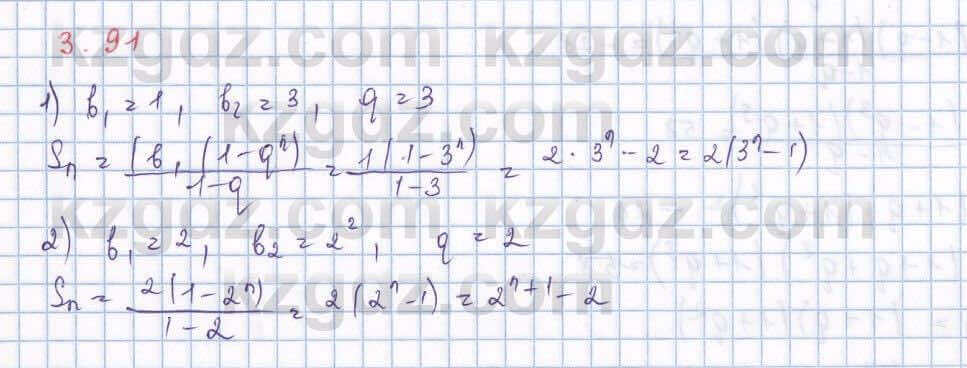 3.91
kzgdz.com kzgdz.com
1) b₁ = 1, b₂ = 3, q = 3
kzgdz.com
Sₙ = (b₁(1-qⁿ)/(1-q) = 1(1-3ⁿ)/(1-3) = 2·3ⁿ-2 = 2(3ⁿ-1)
kzgdz.com kzgdz.com
2) b₁ = 2, b₂ = 2², q = 2
kzgdz.com
Sₙ = 2(1-2ⁿ)/(1-2) = 2(2ⁿ-1) = 2ⁿ⁺¹-2